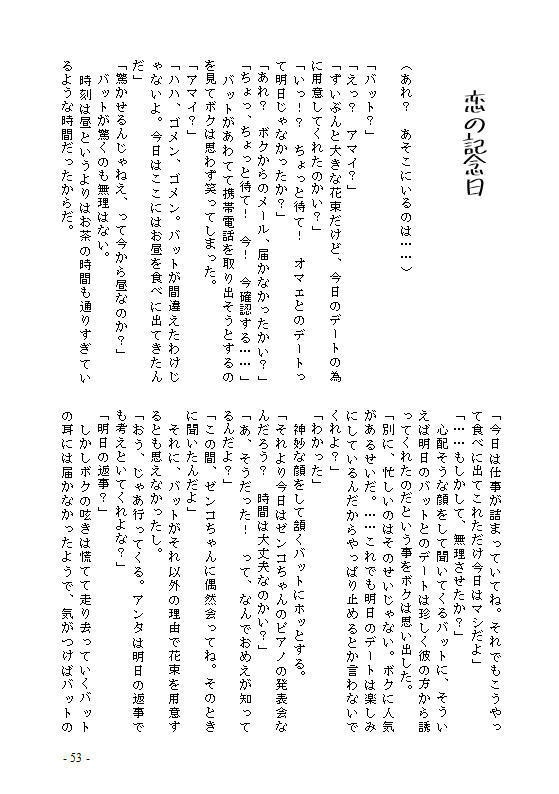 恋の記念日
(あれ? あそこにいるのは……)
「バット?」
「えっ? アマイ?」
「ずいぶんと大きな花束だけど、今日のデートの為
に用意してくれたのかい?」
「いっ!? ちょっと待て! オマェとのデートっ
て明日じゃなかったか?」
「あれ? ボクからのメール、届かなかったかい?」
「ちょっ、ちょっと待て! 今! 今確認する……」
バットがあわてて携帯電話を取り出そうとするの
を見てボクは思わず笑ってしまった。
「アマイ?」
「ハハ、ゴメン、ゴメン。バットが間違えたわけじ
ゃないよ。今日はここにはお昼を食べに出てきたん
だ」
「驚かせるんじゃねえ、って今から昼なのか?」
バットが驚くのも無理はない。
時刻は昼というよりはお茶の時間も通りすぎてい
るような時間だったからだ。
「今日は仕事が詰まっていてね。それでもこうやっ
て食べに出てこれただけ今日はマシだよ」
「……もしかして、無理させたか?」
心配そうな顔をして聞いてくるバットに、そうい
えば明日のバットとのデートは珍しく彼の方から誘
ってくれたのだという事をボクは思い出した。
「別に、忙しいのはそのせいじゃない。ボクに人気
があるせいだ。……これでも明日のデートは楽しみ
にしているんだからやっぱり止めるとか言わないで
くれよ?」
「わかった」
神妙な顔をして頷くバットにホッとする。
「それより今日はゼンコちゃんのピアノの発表会な
んだろう? 時間は大丈夫なのかい?」
「あ、そうだった! って、なんでおめえが知って
るんだよ?」
「この間、ゼンコちゃんに偶然会ってね。そのとき
に聞いたんだよ」
それに、バットがそれ以外の理由で花束を用意す
るとも思えなかったし。
「おう、じゃあ行ってくる。アンタは明日の返事で
も考えといてくれよな?」
「明日の返事?」
しかしボクの呟きは慌てて走り去っていくバット
の耳には届かなかったようで、気がつけばバットの
- 53 -